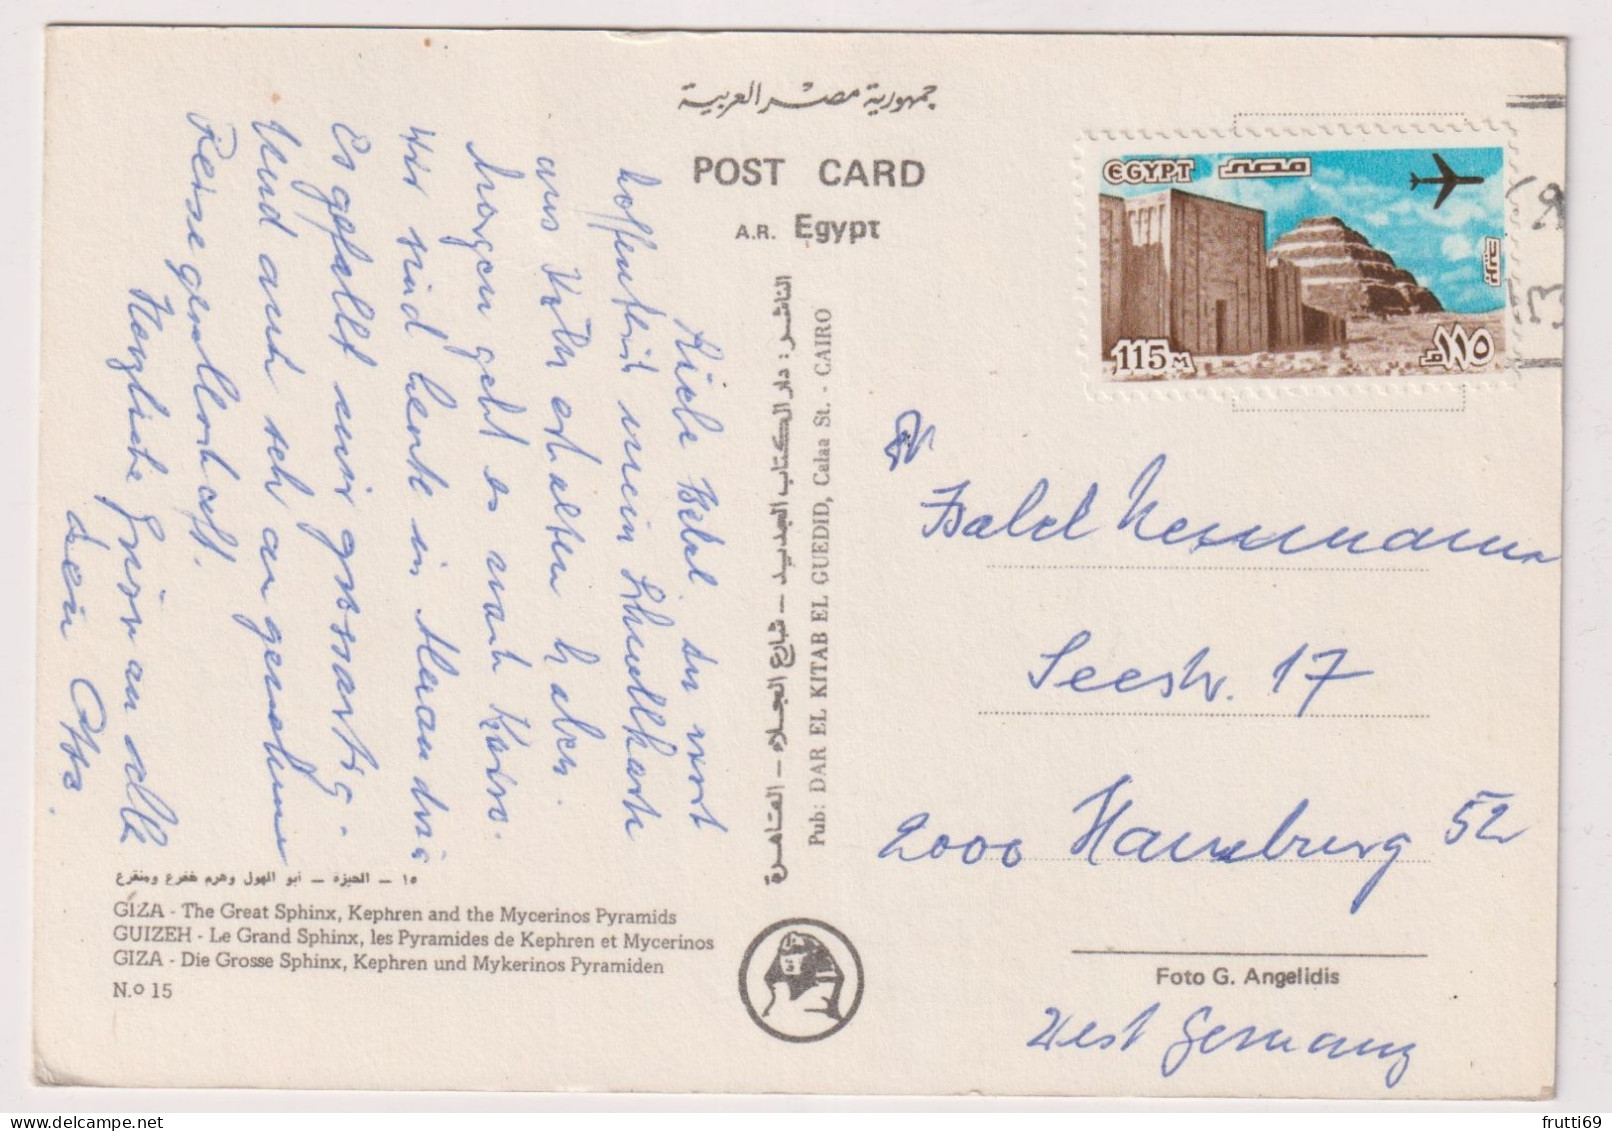 جمهورية مصر العربية
POST CARD
A.R. Egypt
EGYPT مصر
بريد
115 M
١١٥ م
Liebe Isabel du wirst
hoffentlich mein
aus Köln erhalten haben.
Morgen geht es nach Kairo.
Wir sind heute in Alexandria
Es gefällt mir grossartig.
Und auch sehr angenehme
Reisegesellschaft.
Herzliche Grüsse an alle
dein
الناشر : دار الكتاب الجديد - شارع الجلاء - القاهرة
Pub: DAR EL KITAB EL GUEDID, Calaa St. - CAIRO
An
Isabel
Seestr. 17
2000 Hamburg 52
West Germany
١٥ - الجيزة - أبو الهول وهرم خفرع ومنقرع
GIZA - The Great Sphinx, Kephren and the Mycerinos Pyramids
GUIZEH - Le Grand Sphinx, les Pyramides de Kephren et Mycerinos
GIZA - Die Grosse Sphinx, Kephren und Mykerinos Pyramiden
N.º 15
Foto G. Angelidis
frutti69